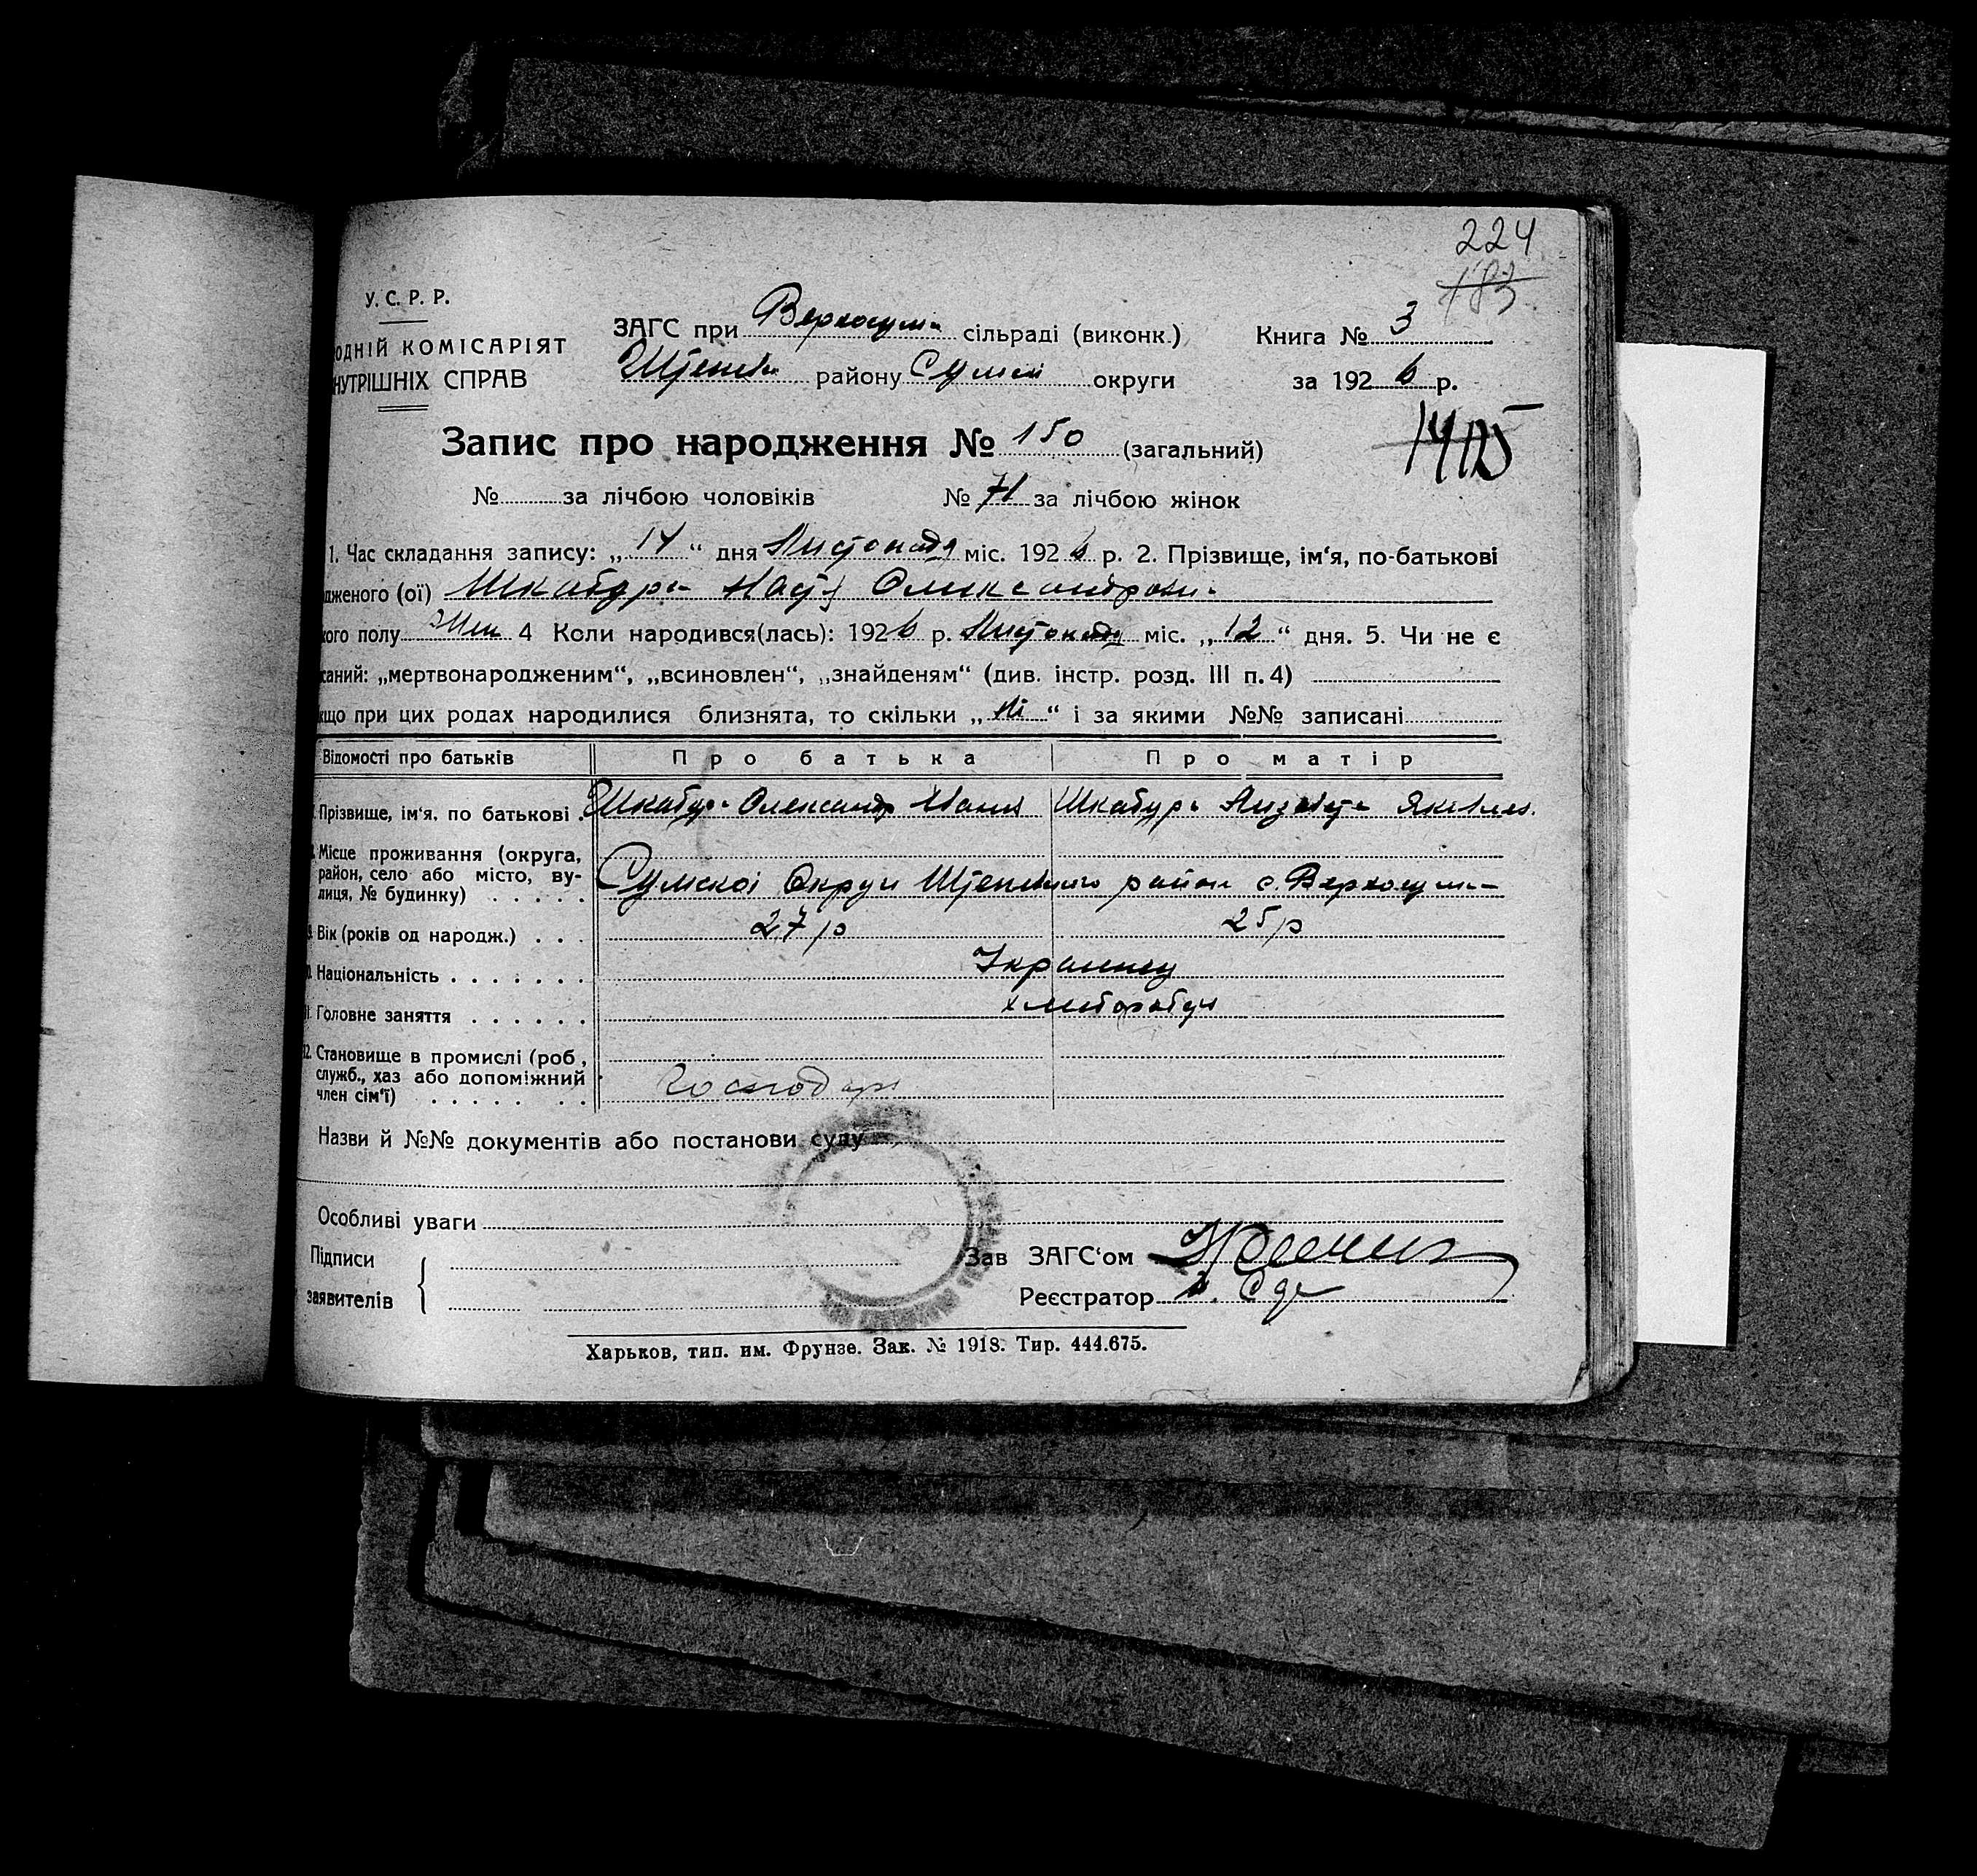 224
183
У. С. Р. Р.
ОДНІЙ КОМІСАРІЯТ
НУТРІШНІХ СПРАВ
ЗАГС при Верхосум. сільраді (виконк.)
району Сумскі округи
Книга № 3
за 1926 р.
Запис про народження № 150 (загальний)
№ за лічбою чоловіків № 71 за лічбою жінок
1. Час складання запису: „14“ дня Листопада міс. 1926 р. 2. Прізвище, ім‘я, по-батькові
дженого (ої) Шкабура Олександровн.
кого полу Жін 4 Коли народився(лась): 1926 р. Листопада міс. „12“ дня. 5. Чи не є
саний: „мертвонародженим“, „всиновлен“, „знайденям“ (див. інстр. розд. III п. 4)
кщо при цих родах народилися близнята, то скільки „Ні“ і за якими №№ записані
Відомості про батьків Про батька Про матір
Прізвище, ім‘я, по батькові . Шкабура Олександр Іванов Шкабура Лизавета Яковлев.
Місце проживання (округа,
район, село або місто, ву-
лиця, № будинку) . . . . . Сумскоі Округи района с. Верхосум
Вік (років од народж.) . . . 27 р 25 р
Національність . . . . . . . Украинец
11. Головне заняття . . . . . . хлібороби
12. Становище в промислі (роб.,
служб., хаз або допоміжний
член сім‘ї) . . . . . . . Господарь
Назви й №№ документів або постанови суду
Особливі уваги
Підписи
заявителів
Зав ЗАГС‘ом
Реєстратор
Харьков, тип. им. Фрунзе. Зак. № 1918. Тир. 444.675.